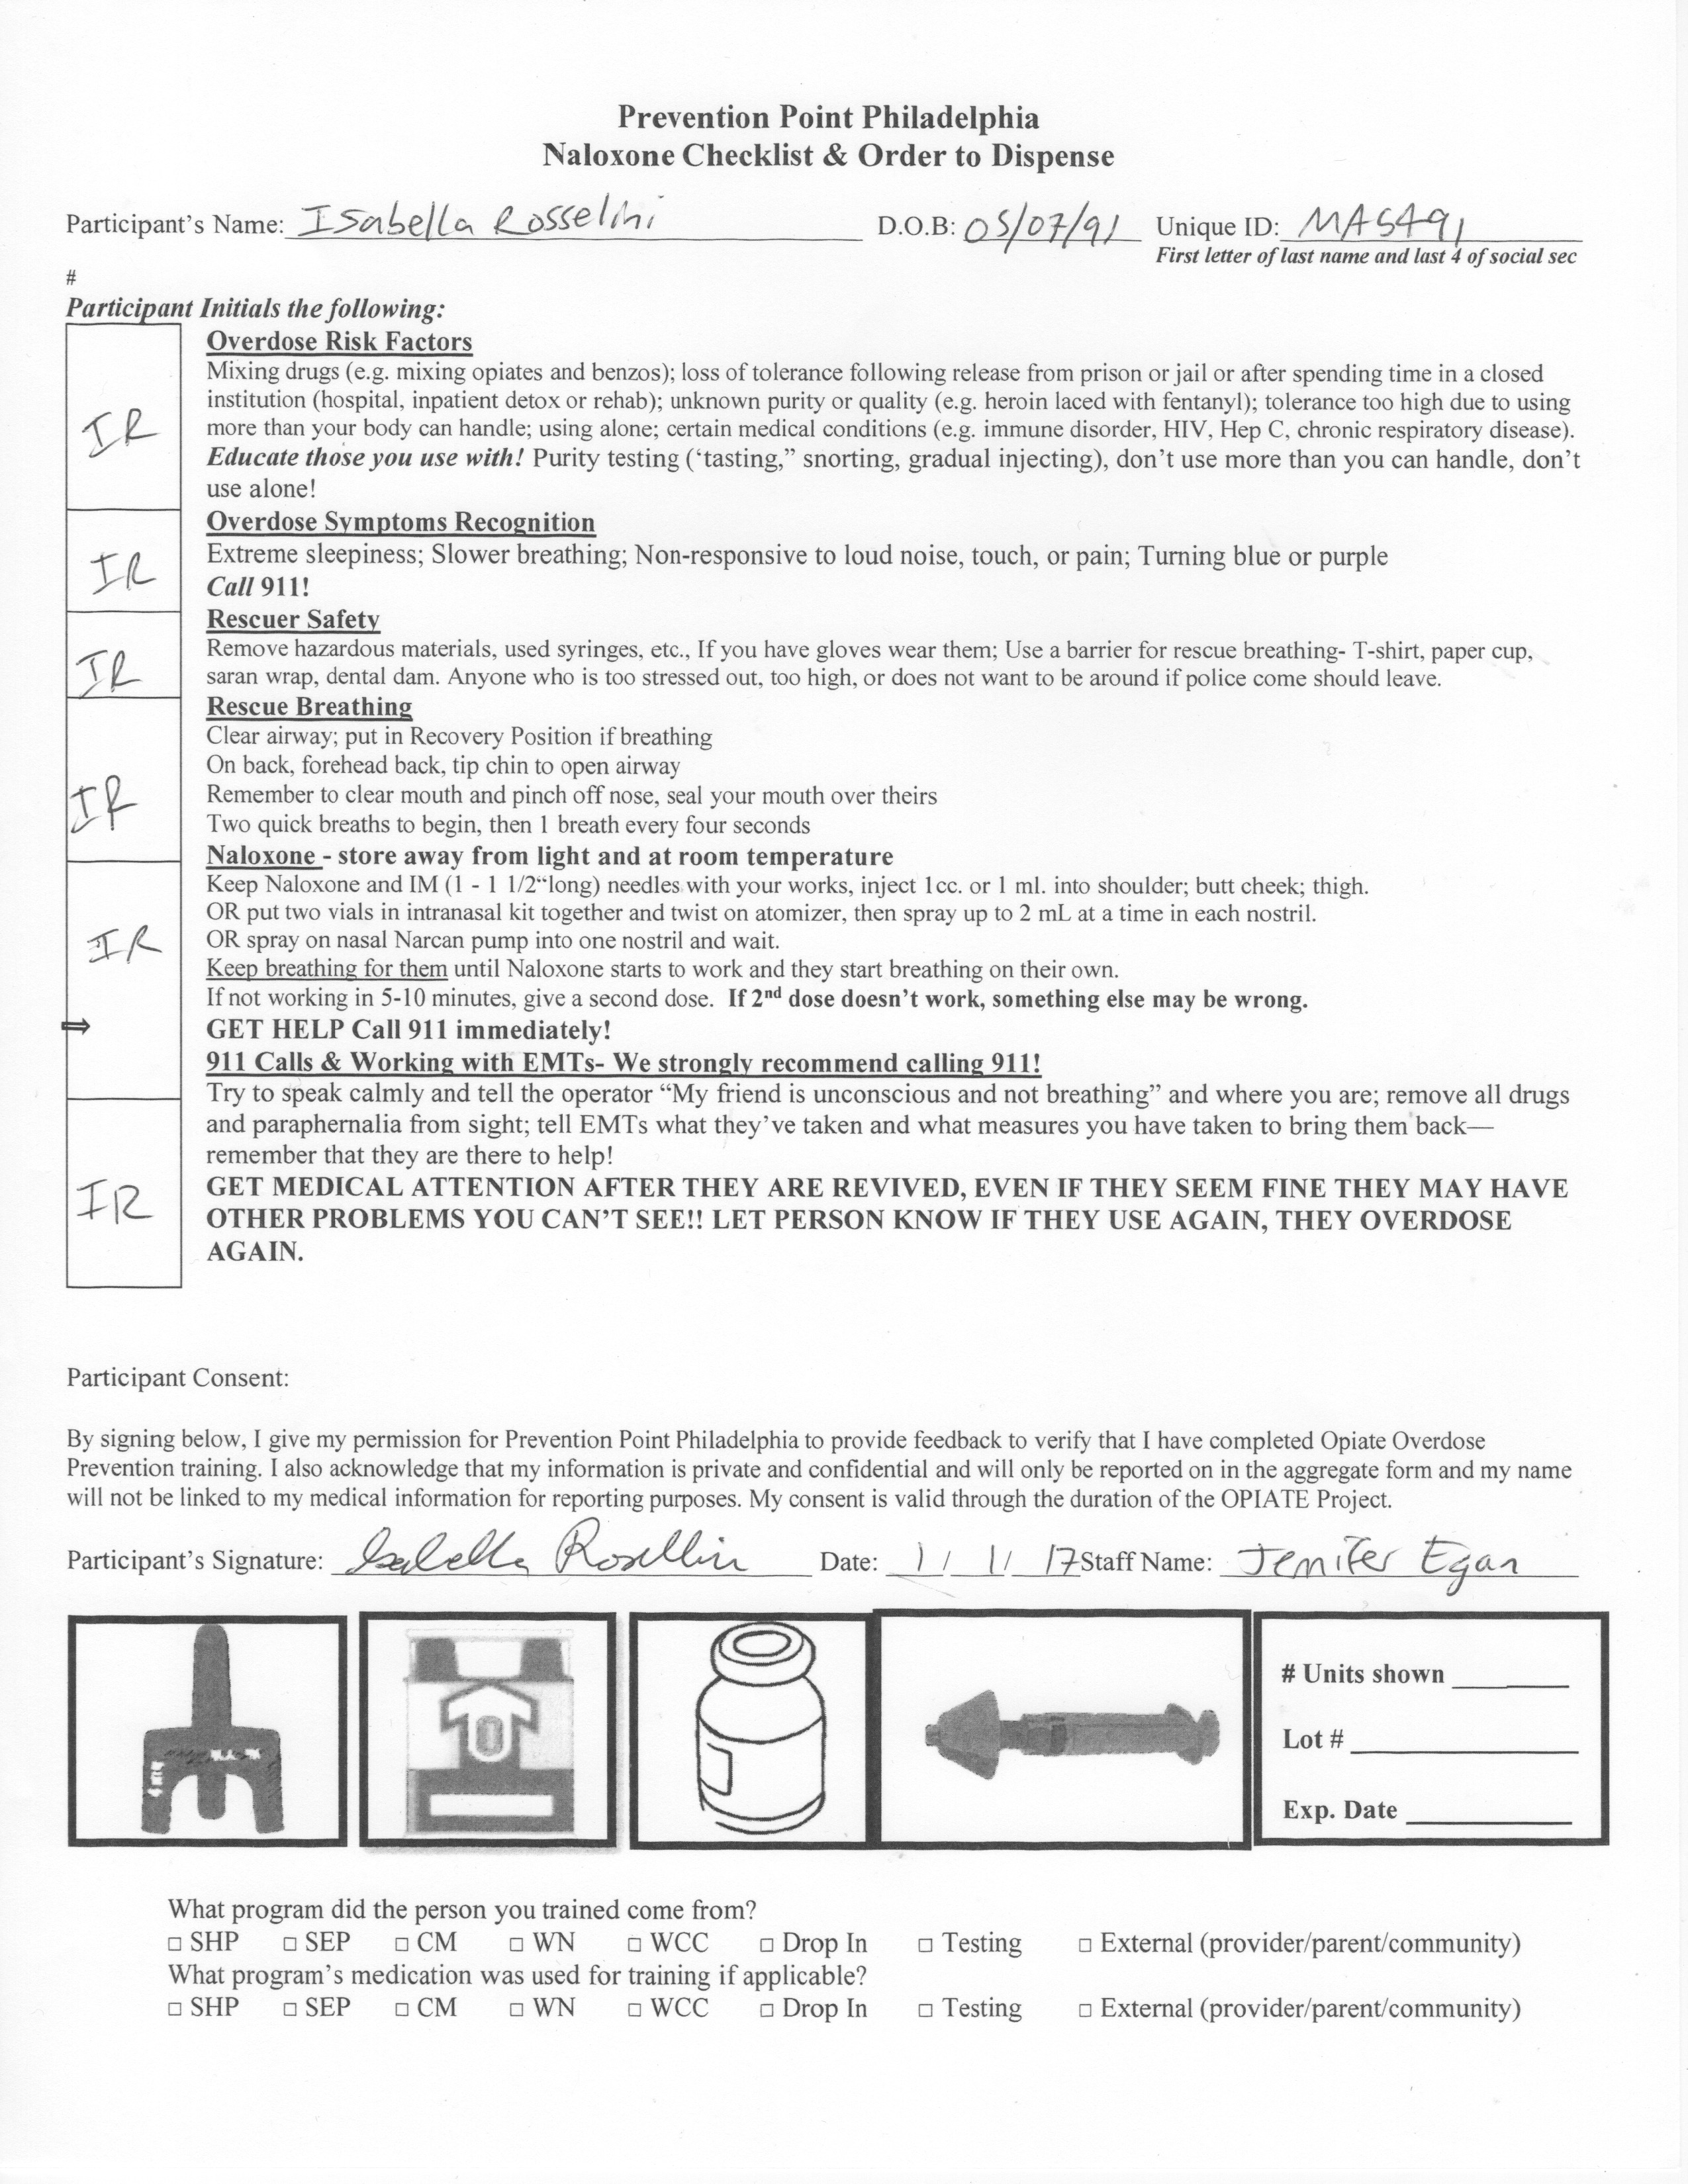 Prevention Point Philadelphia
Naloxone Checklist & Order to Dispense
Participant's Name: Isabella Rosselini D.O.B: 05/07/91 Unique ID: MAS491
First letter of last name and last 4 of social sec
#
Participant Initials the following:
Overdose Risk Factors
Mixing drugs (e.g. mixing opiates and benzos); loss of tolerance following release from prison or jail or after spending time in a closed
institution (hospital, inpatient detox or rehab); unknown purity or quality (e.g. heroin laced with fentanyl); tolerance too high due to using
IR more than your body can handle; using alone; certain medical conditions (e.g. immune disorder, HIV, Hep C, chronic respiratory disease).
Educate those you use with! Purity testing ('tasting,” snorting, gradual injecting), don't use more than you can handle, don't
use alone!
Overdose Symptoms Recognition
IR Extreme sleepiness; Slower breathing; Non-responsive to loud noise, touch, or pain; Turning blue or purple
Call 911!
Rescuer Safety
IR Remove hazardous materials, used syringes, etc., If you have gloves wear them; Use a barrier for rescue breathing- T-shirt, paper cup,
saran wrap, dental dam. Anyone who is too stressed out, too high, or does not want to be around if police come should leave.
Rescue Breathing
Clear airway; put in Recovery Position if breathing
On back, forehead back, tip chin to open airway
IR Remember to clear mouth and pinch off nose, seal your mouth over theirs
Two quick breaths to begin, then 1 breath every four seconds
Naloxone - store away from light and at room temperature
Keep Naloxone and IM (1 - 1 1/2“long) needles with your works, inject 1cc. or 1 ml. into shoulder; butt cheek; thigh.
OR put two vials in intranasal kit together and twist on atomizer, then spray up to 2 mL at a time in each nostril.
IR OR spray on nasal Narcan pump into one nostril and wait.
Keep breathing for them until Naloxone starts to work and they start breathing on their own.
If not working in 5-10 minutes, give a second dose. If 2nd dose doesn't work, something else may be wrong.
⇒ GET HELP Call 911 immediately!
911 Calls & Working with EMTs- We strongly recommend calling 911!
Try to speak calmly and tell the operator “My friend is unconscious and not breathing” and where you are; remove all drugs
and paraphernalia from sight; tell EMTs what they've taken and what measures you have taken to bring them back—
remember that they are there to help!
IR GET MEDICAL ATTENTION AFTER THEY ARE REVIVED, EVEN IF THEY SEEM FINE THEY MAY HAVE
OTHER PROBLEMS YOU CAN'T SEE!! LET PERSON KNOW IF THEY USE AGAIN, THEY OVERDOSE
AGAIN.
Participant Consent:
By signing below, I give my permission for Prevention Point Philadelphia to provide feedback to verify that I have completed Opiate Overdose
Prevention training. I also acknowledge that my information is private and confidential and will only be reported on in the aggregate form and my name
will not be linked to my medical information for reporting purposes. My consent is valid through the duration of the OPIATE Project.
Participant's Signature: Isabella Rosellin Date: 1/ 1/ 17 Staff Name: Jenifer Egan
# Units shown
Lot #
Exp. Date
What program did the person you trained come from?
□ SHP □ SEP □ CM □ WN □ WCC □ Drop In □ Testing □ External (provider/parent/community)
What program's medication was used for training if applicable?
□ SHP □ SEP □ CM □ WN □ WCC □ Drop In □ Testing □ External (provider/parent/community)